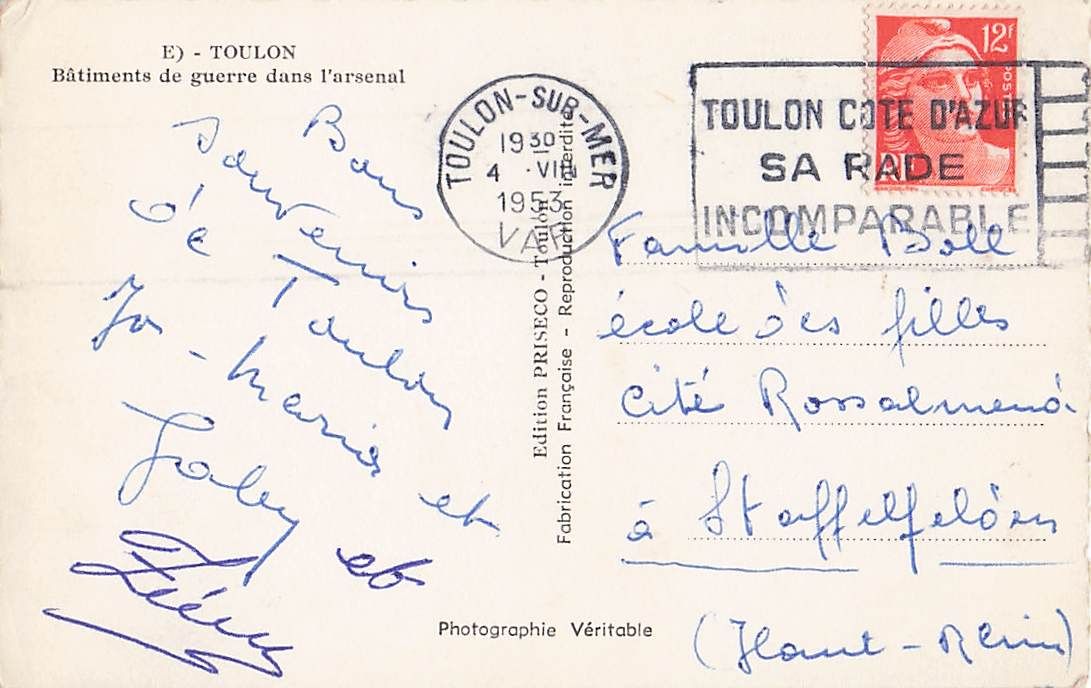 E) - TOULON
Bâtiments de guerre dans l'arsenal
Bons
Souvenirs
de Toulon
Jo - Maria et
Gaby et
TOULON-SUR-MER
19 30
4 ·VIII
1953
VAR
TOULON COTE D'AZUR
SA RADE
INCOMPARABLE
12f
POSTES
Edition PRISECO - Toulon
Fabrication Française - Reproduction interdite
Famille Boll
école des filles
Cité Rossalmend
à Staffelfelden
(Haut-Rhin)
Photographie Véritable